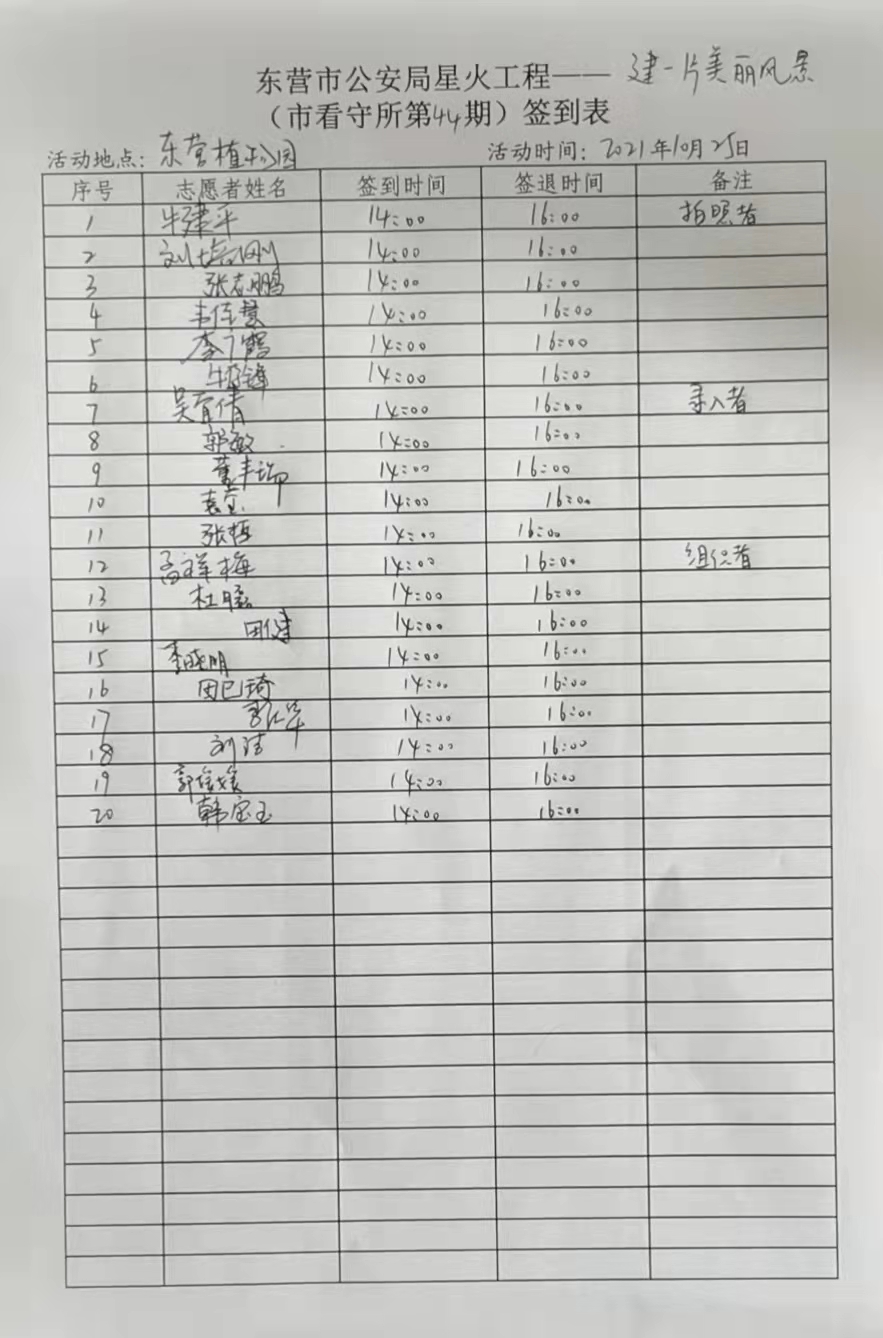 东营市公安局星火工程—— 建一片美丽风景
（市看守所第44期）签到表
活动地点：东营植物园 活动时间：2021年10月25日
序号 志愿者姓名 签到时间 签退时间 备注
1 牛建平 14:00 16:00 拍照者
2 刘培刚 14:00 16:00
3 张志鹏 14:00 16:00
4 韦佳慧 14:00 16:00
5 李广鹤 14:00 16:00
6 14:00 16:00
7 吴育倩 14:00 16:00 录入者
8 郭敏 14:00 16:00
9 董丰瑞 14:00 16:00
10 袁全 14:00 16:00
11 张哲 14:00 16:00
12 孟祥梅 14:00 16:00 组织者
13 杜 14:00 16:00
14 田健 14:00 16:00
15 李晓明 14:00 16:00
16 田巳琦 14:00 16:00
17 14:00 16:00
18 刘洁 14:00 16:00
19 郭媛媛 14:00 16:00
20 韩宝玉 14:00 16:00